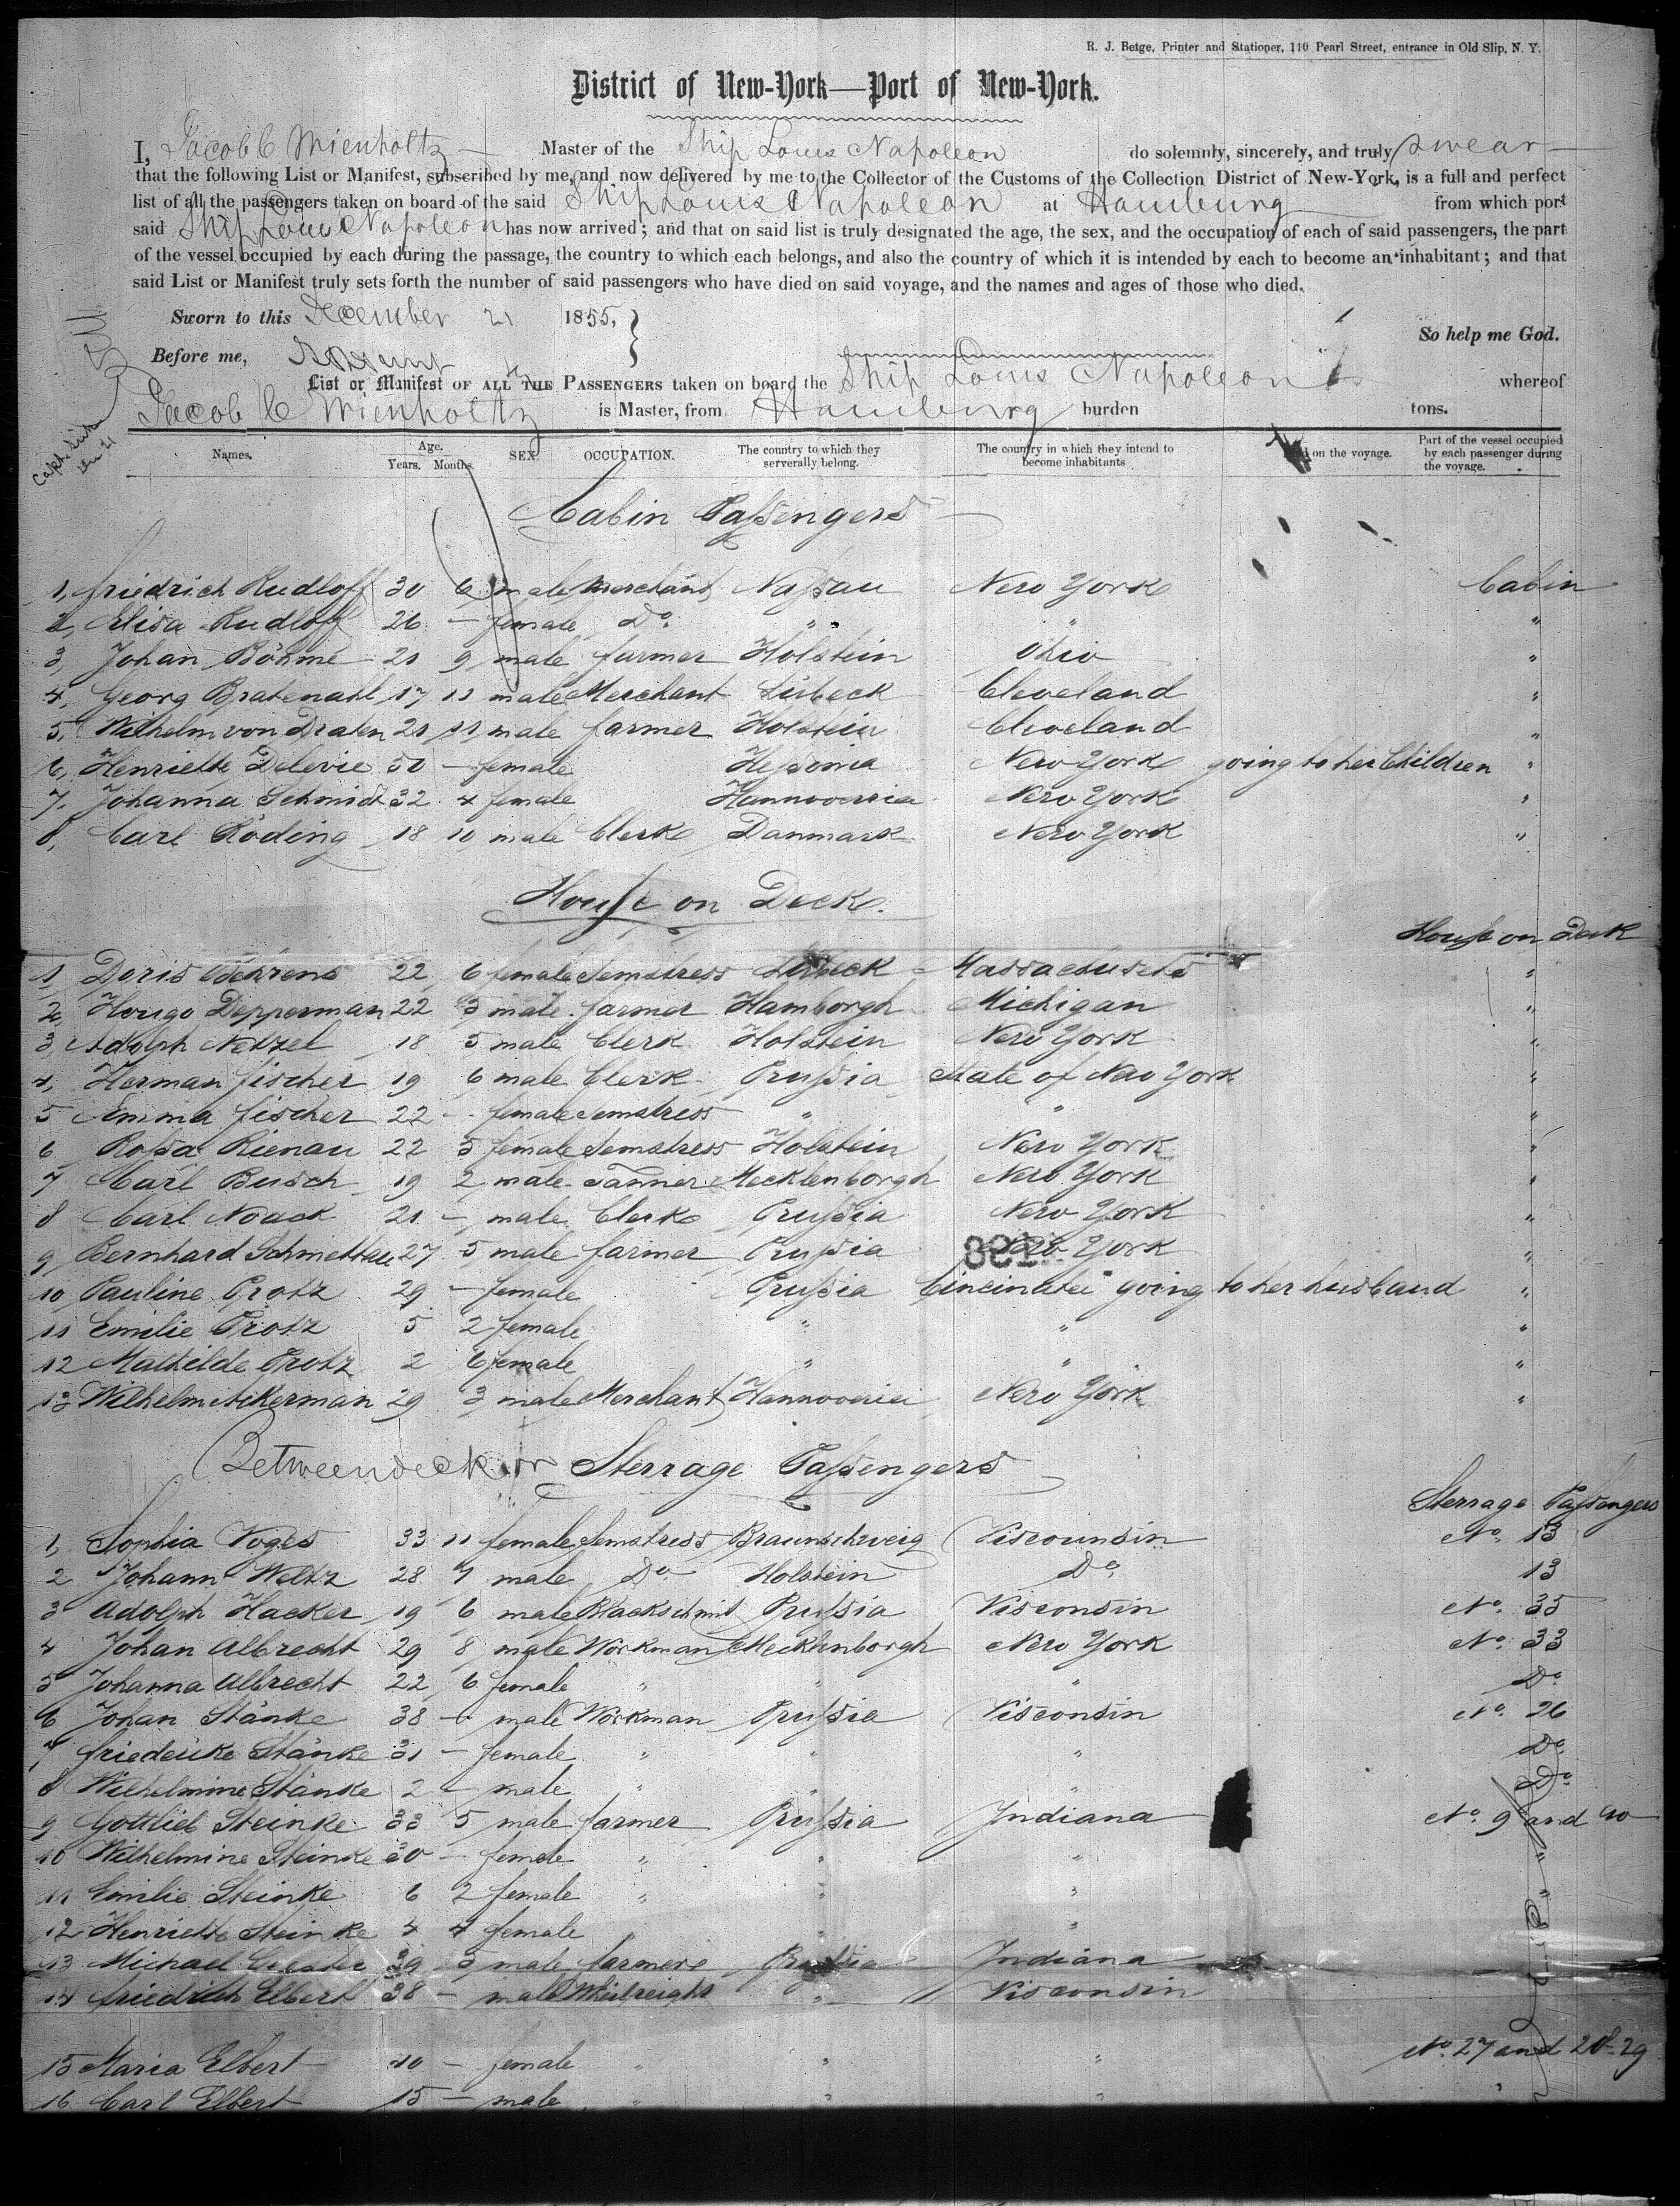 R. J. Betge, Printer and Stationer, 110 Pearl Street, entrance in Old Slip, N. Y.
District of New-York—Port of New-York.
I, Jacob C Mienholtz Master of the Ship Louis Napoleon do solemnly, sincerely, and truly swear
that the following List or Manifest, subscribed by me, and now delivered by me to the Collector of the Customs of the Collection District of New-York, is a full and perfect
list of all the passengers taken on board of the said Ship Louis Napoleon at Hamburg from which port
said Ship Louis Napoleon has now arrived; and that on said list is truly designated the age, the sex, and the occupation of each of said passengers, the part
of the vessel occupied by each during the passage, the country to which each belongs, and also the country of which it is intended by each to become an inhabitant; and that
said List or Manifest truly sets forth the number of said passengers who have died on said voyage, and the names and ages of those who died.
Sworn to this December 21 1855,
So help me God.
Before me,
List or Manifest OF ALL THE PASSENGERS taken on board the Ship Louis Napoleon whereof
Jacob C Mienholtz is Master, from Hamburg burden tons.
Names. Age. Years. Months. SEX. OCCUPATION. The country to which they serverally belong. The country in which they intend to become inhabitants on the voyage. Part of the vessel occupied by each passenger during the voyage.
Cabin Passengers
1, Friedrich Rudloff 30 6 male Merchant Nassau New York Cabin
2, Elisa Rudloff 26 — female Do " " "
3, Johan Böhme 21 9 male farmer Holstein Ohio "
4, Georg Bratenahl 17 11 male Merchant Lübeck Cleveland "
5, Wilhelm von Draten 21 11 male farmer Holstein Cleveland "
6, Henriette Delevie 50 — female Hessonia New York going to her Children "
7. Johanna Schmidt 32 4 female Hannoveria New York "
8, Carl Röding 18 10 male Clerk Danmark New York "
House on Deck.
House on Deck
1, Doris Behrens 22 6 female Semstress Lübeck Massachusets "
2, Hougo Depperman 22 3 male farmer Hamborgh Michigan "
3, Adolph Netzel 18 5 male Clerk Holstein New York "
4, Herman Fischer 19 6 male Clerk Prussia State of New York "
5 Emma Fischer 22 — female Semstress " " "
6 Rossa Rienau 22 5 female Semstress Holstein New York "
7 Carl Busch 19 2 male Tanner Mecklenborgh New York "
8 Carl Noack 21 — male Clerk Prussia New York "
9 Bernhard Schmettau 27 5 male farmer Prussia New York "
10 Pauline Protz 29 — female Prussia Cincinatei going to her husband "
11 Emilie Protz 5 2 female " " "
12 Mathilde Protz 2 6 female " " "
13 Wilhelm Akerman 29 3 male Merchant Hannoveria New York "
Betweendeck or Sterrage Passengers
Sterrage Passengers
1, Sophia Voges 33 11 female Semstress Braunschweig Viscounsin No 13
2 Johann Weltz 28 7 male Do Holstein Do 13
3 Adolph Hacker 19 6 male Blackschmit Prussia Visconsin No 35
4 Johan Albrecht 29 8 male Workman Mecklenborgh New York No 33
5 Johanna Albrecht 22 6 female " " " Do
6 Johan Stänke 38 — male Workman Prussia Visconsin No 26
7 Friedericke Stänke 31 — female " " " Do
8 Wilhelmine Stänke 2 — male " " " Do
9 Gottlieb Steinke 33 5 male farmer Prussia Indiana No 9 and 10
10 Wilhelmine Steinke 30 — female " " " "
11 Emilie Steinke 6 2 female " " " "
12 Henriette Steinke 4 4 female " " "
13 Michael 39 5 male farmer Prussia Indiana
14 Friedrich Elbert 38 — male Wheilreight " Visconsin
15 Maria Elbert 40 — female " " " No 27 and 28-29
16 Carl Elbert 15 — male " " " "